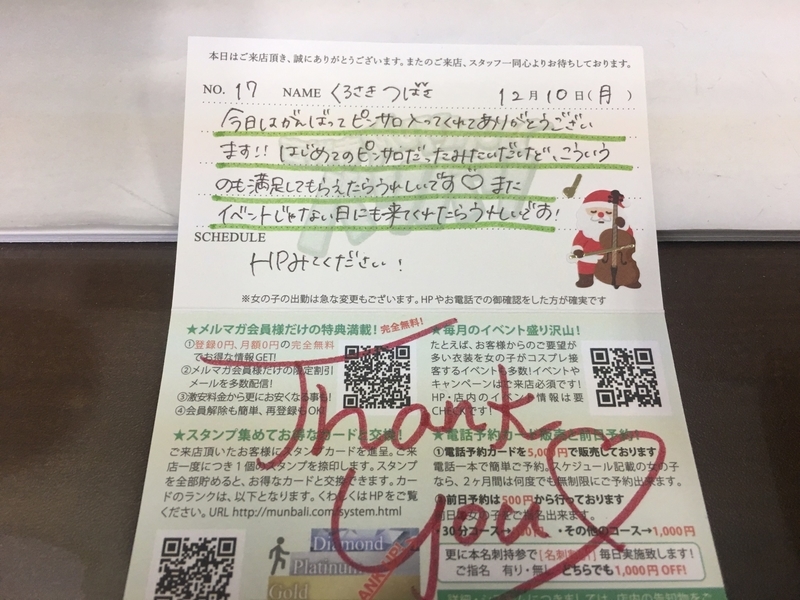 本日はご来店頂き、誠にありがとうございます。またのご来店、スタッフ一同心よりお待ちしております。
NO. 17 NAME くろさき つばさ 12月10日(月)
今日はがんばってピンサロ入ってくれてありがとうござい
ます!! はじめてのピンサロだったみたいだけど、こういう
のも満足してもらえたらうれしいです♡ また
イベントじゃない日にも来てくれたらうれしいです!
SCHEDULE
HPみてください!
※女の子の出勤は急な変更もございます。HPやお電話での御確認をした方が確実です
★メルマガ会員様だけの特典満載!完全無料!
①登録0円、月額0円の完全無料
でお得な情報GET!
②メルマガ会員様だけの限定割引
メールを多数配信!
③激安料金から更にお安くなる事も!
④会員解除も簡単、再登録もOK!
★スタンプ集めてお得なカードと交換!
ご来店頂いたお客様にスタンプカードを進呈。ご来
店一度につき1個のスタンプを捺印します。スタンプ
を全部貯めると、お得なカードと交換できます。カー
ドのランクは、以下となります。くわしくはHPをご覧
ください。URL http://munbali.com/system.html
Diamond
Platinum
Gold
★毎月のイベント盛り沢山!
たとえば、お客様からのご要望が
多い衣装を女の子がコスプレ接
客するイベントも多数!イベントや
キャンペーンはご来店必須です!
HP・店内のイベント情報は要
CHECKです!
★電話予約カード販売と前日予約!
①電話予約カードを5,000円で販売しております
電話一本で簡単ご予約。スケジュール記載の女の子
なら、2ヶ月間は何度でも無制限にご予約出来ます。
②前日予約は500円から行っております
前日に女の子をご指名出来ます。
・30分コース→ 円、・その他のコース→1,000円
更に本名刺持参で[名刺割引]毎日実施致します!
ご指名 有り・無し どちらでも1,000円OFF!
Thank
you♡